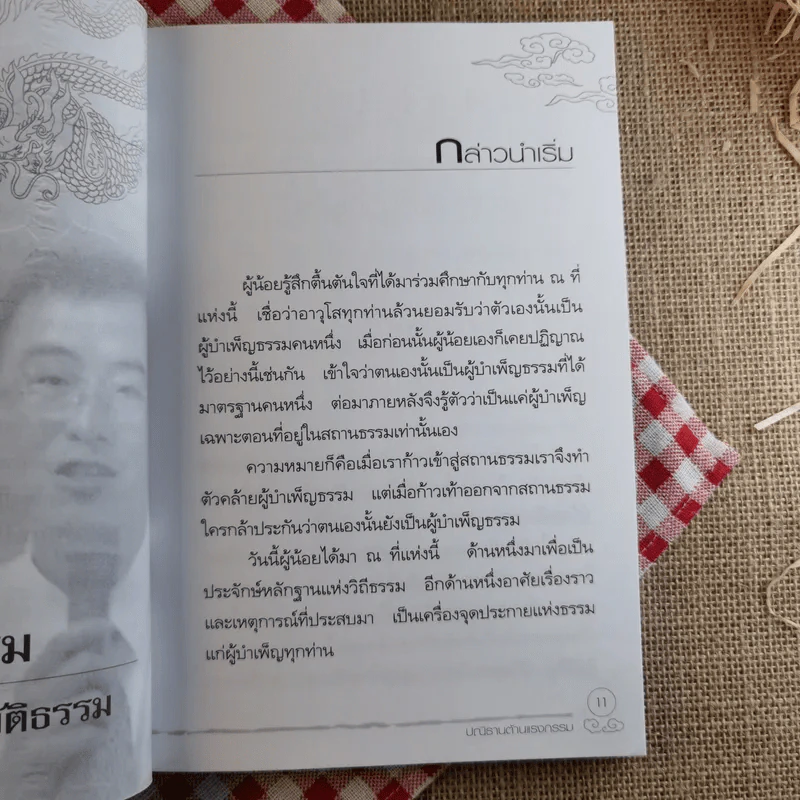 กล่าวนำเริ่ม
ผู้น้อยรู้สึกตื้นตันใจที่ได้มาร่วมศึกษากับทุกท่าน ณ ที่
แห่งนี้ เชื่อว่าอาวุโสทุกท่านล้วนยอมรับว่าตัวเองนั้นเป็น
ผู้บำเพ็ญธรรมคนหนึ่ง เมื่อก่อนนั้นผู้น้อยเองก็เคยปฏิญาณ
ไว้อย่างนี้เช่นกัน เข้าใจว่าตนเองนั้นเป็นผู้บำเพ็ญธรรมที่ได้
มาตรฐานคนหนึ่ง ต่อมาภายหลังจึงรู้ตัวว่าเป็นแค่ผู้บำเพ็ญ
เฉพาะตอนที่อยู่ในสถานธรรมเท่านั้นเอง
ความหมายก็คือเมื่อเราก้าวเข้าสู่สถานธรรมเราจึงทำ
ตัวคล้ายผู้บำเพ็ญธรรม แต่เมื่อก้าวเท้าออกจากสถานธรรม
ใครกล้าประกันว่าตนเองนั้นยังเป็นผู้บำเพ็ญธรรม
วันนี้ผู้น้อยได้มา ณ ที่แห่งนี้ ด้านหนึ่งมาเพื่อเป็น
ประจักษ์หลักฐานแห่งวิถีธรรม อีกด้านหนึ่งอาศัยเรื่องราว
และเหตุการณ์ที่ประสบมา เป็นเครื่องจุดประกายแห่งธรรม
แก่ผู้บำเพ็ญทุกท่าน
11
ปณิธานต้านแรงกรรม